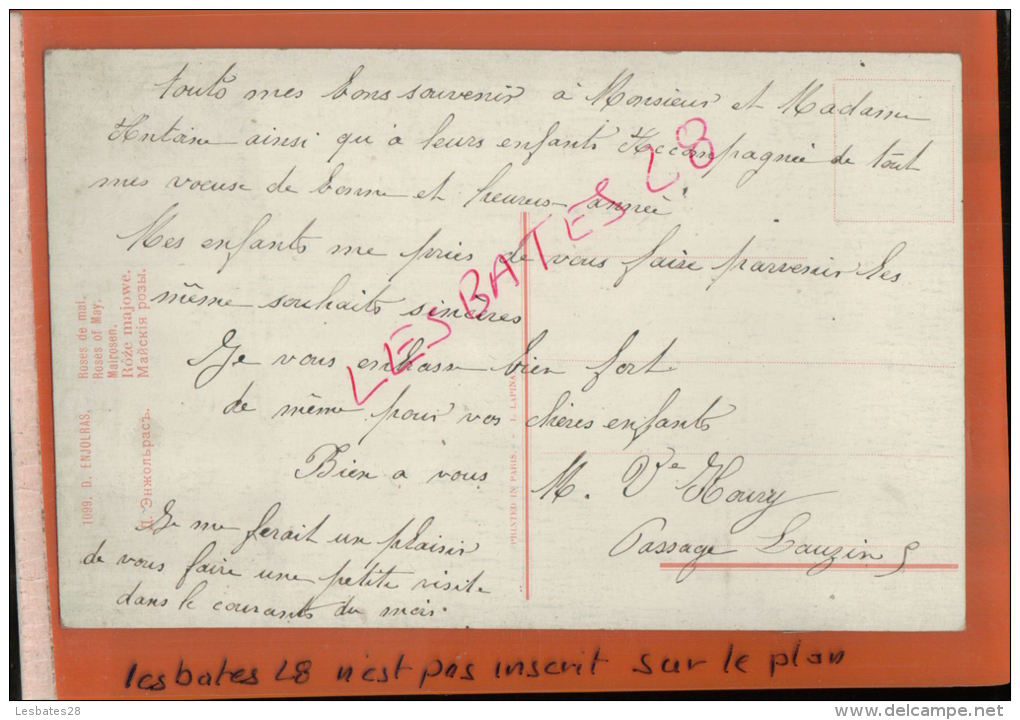 touts mes bons souvenir à Monsieur et Madame
Antoine ainsi qu'a leurs enfants Accompagnée de tout
mes voeuse de bonne et heureus année
Mes enfants me pries de vous faire parvenir les
même souhaits sincères
Je vous embrasse bien fort
de même pour vos chères enfants
Bien a vous
M. Vve Houry
Passage Lauzin 5
Je me ferait un plaisir
de vous faire une petite visite
dans le courants du mois.
LES BATES 28
1099. D. ENJOLRAS. Roses de mai.
Roses of May.
Mairosen.
Róże majowe.
Д. Энжольрасъ. Майскія розы.
PRINTED IN PARIS. — I. LAPINA
lesbates 28 n'est pas inscrit sur le plan
Lesbates28
www.delcampe.net